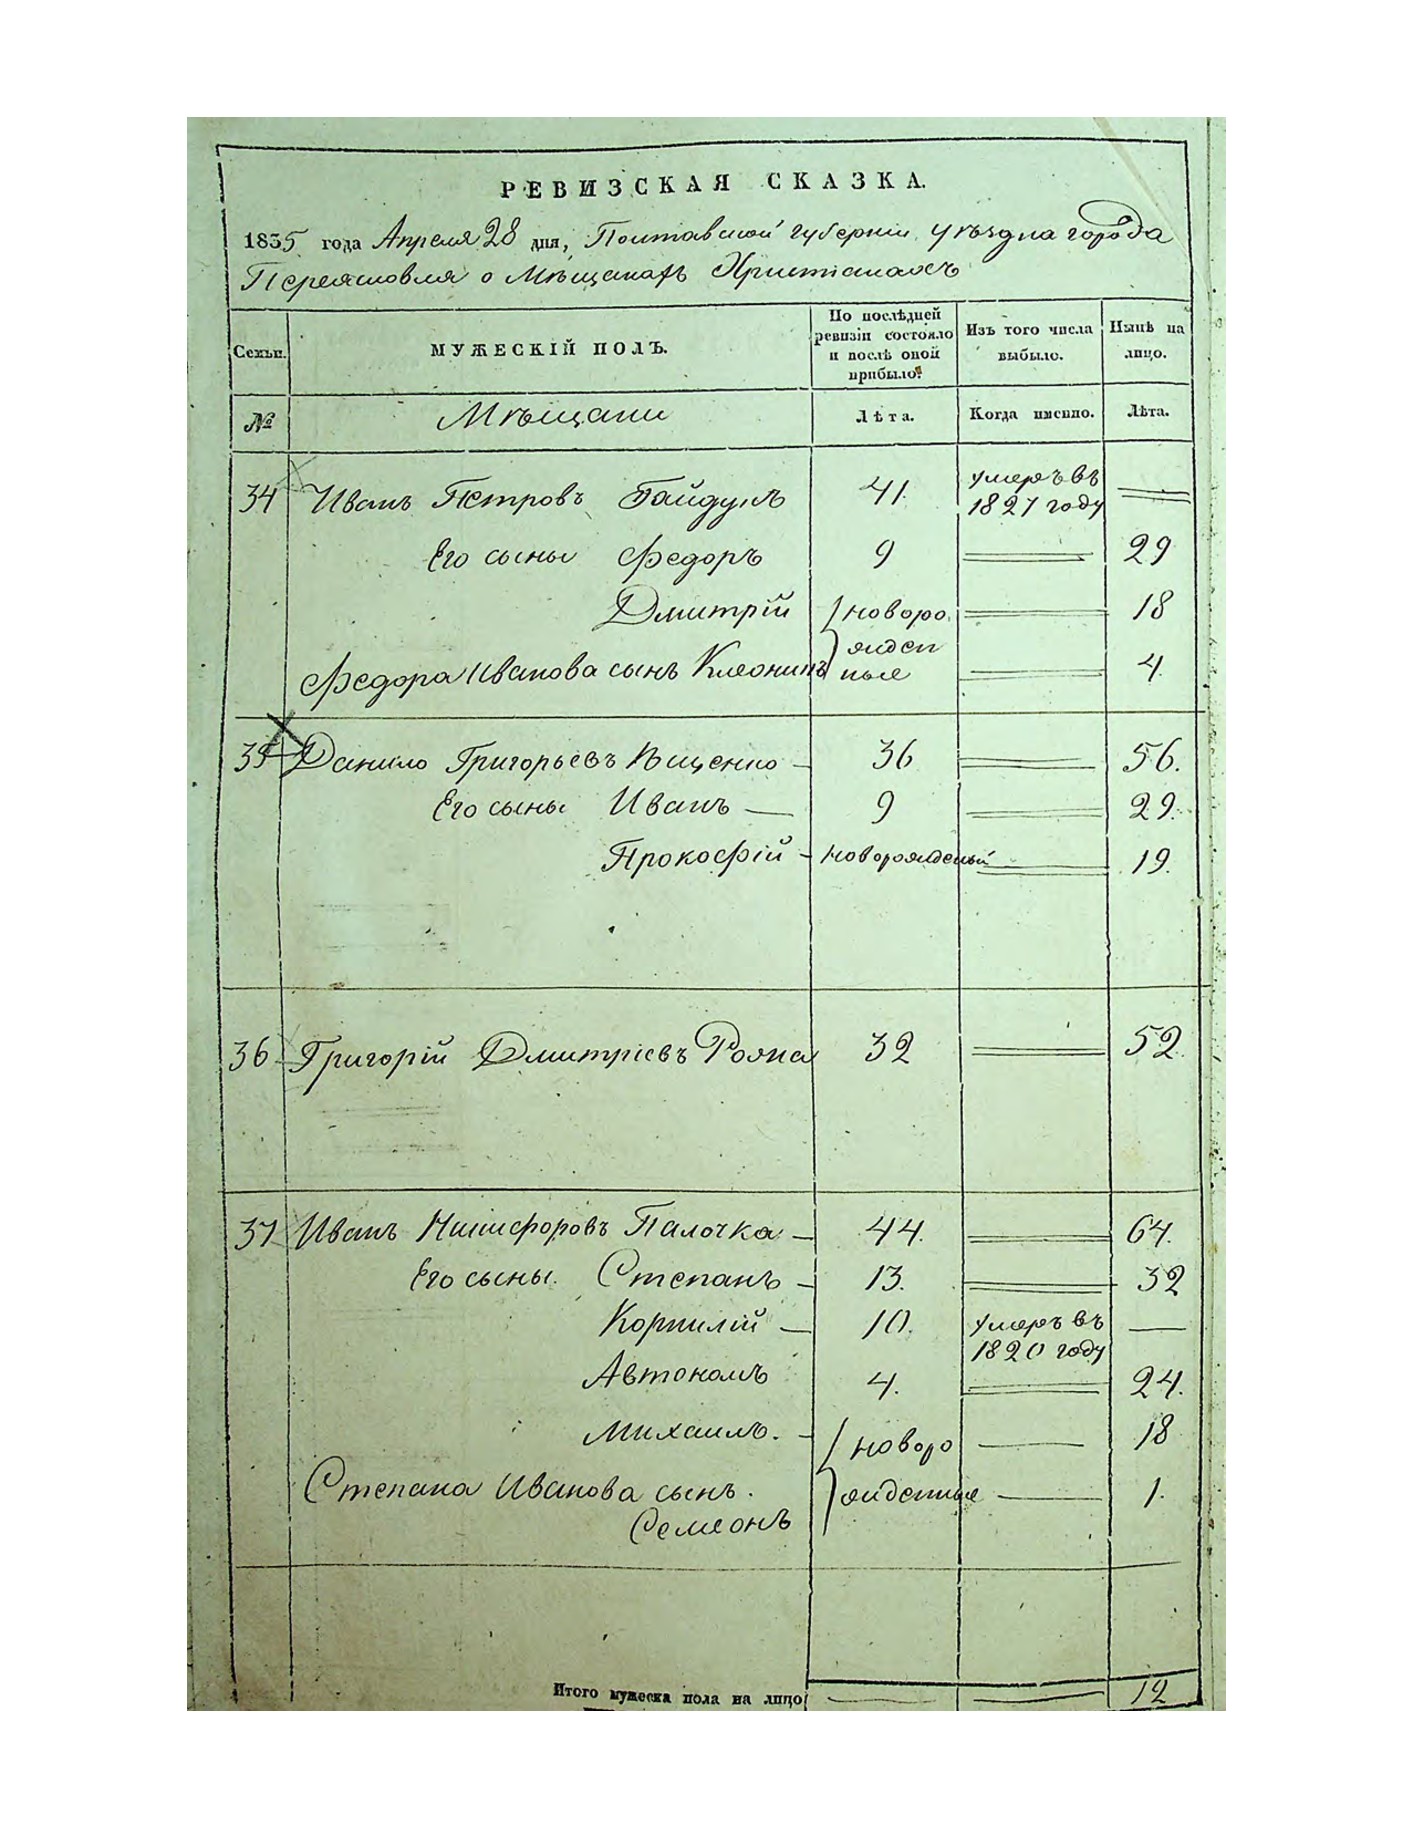 РЕВИЗСКАЯ СКАЗКА.
1835 года Апреля 28 дня, Полтавской губернии уѣзднаго города
Переяславля о Мѣщанахъ Христіанахъ
Семьи. МУЖЕСКІЙ ПОЛЪ. По послѣдней ревизіи состояло и послѣ оной прибыло. Изъ того числа выбыло. Нынѣ на лицо.
№ Мѣщани Лѣта. Когда именно. Лѣта.
34 Иванъ Петровъ Гайдукъ 41. умеръ въ 1827 году
Его сыны Федоръ 9 29
Дмитрій новоро 18
Федора Иванова сынъ жден ные 4
35 Данило Григорьевъ 36 56.
Его сыны Иванъ 9 29.
Прокофій новорожденый 19.
36 Григорій Дмитріевъ 32 52.
37 Иванъ Никифоровъ Палочка 44. 64.
Его сыны. Степанъ 13. 32
Корнилій 10. умеръ въ 1820 году
Автономъ 4. 24.
Михаилъ. новоро 18
Степана Иванова сынъ. жденные 1.
Семеонъ
Итого мужеска пола на лицо 12